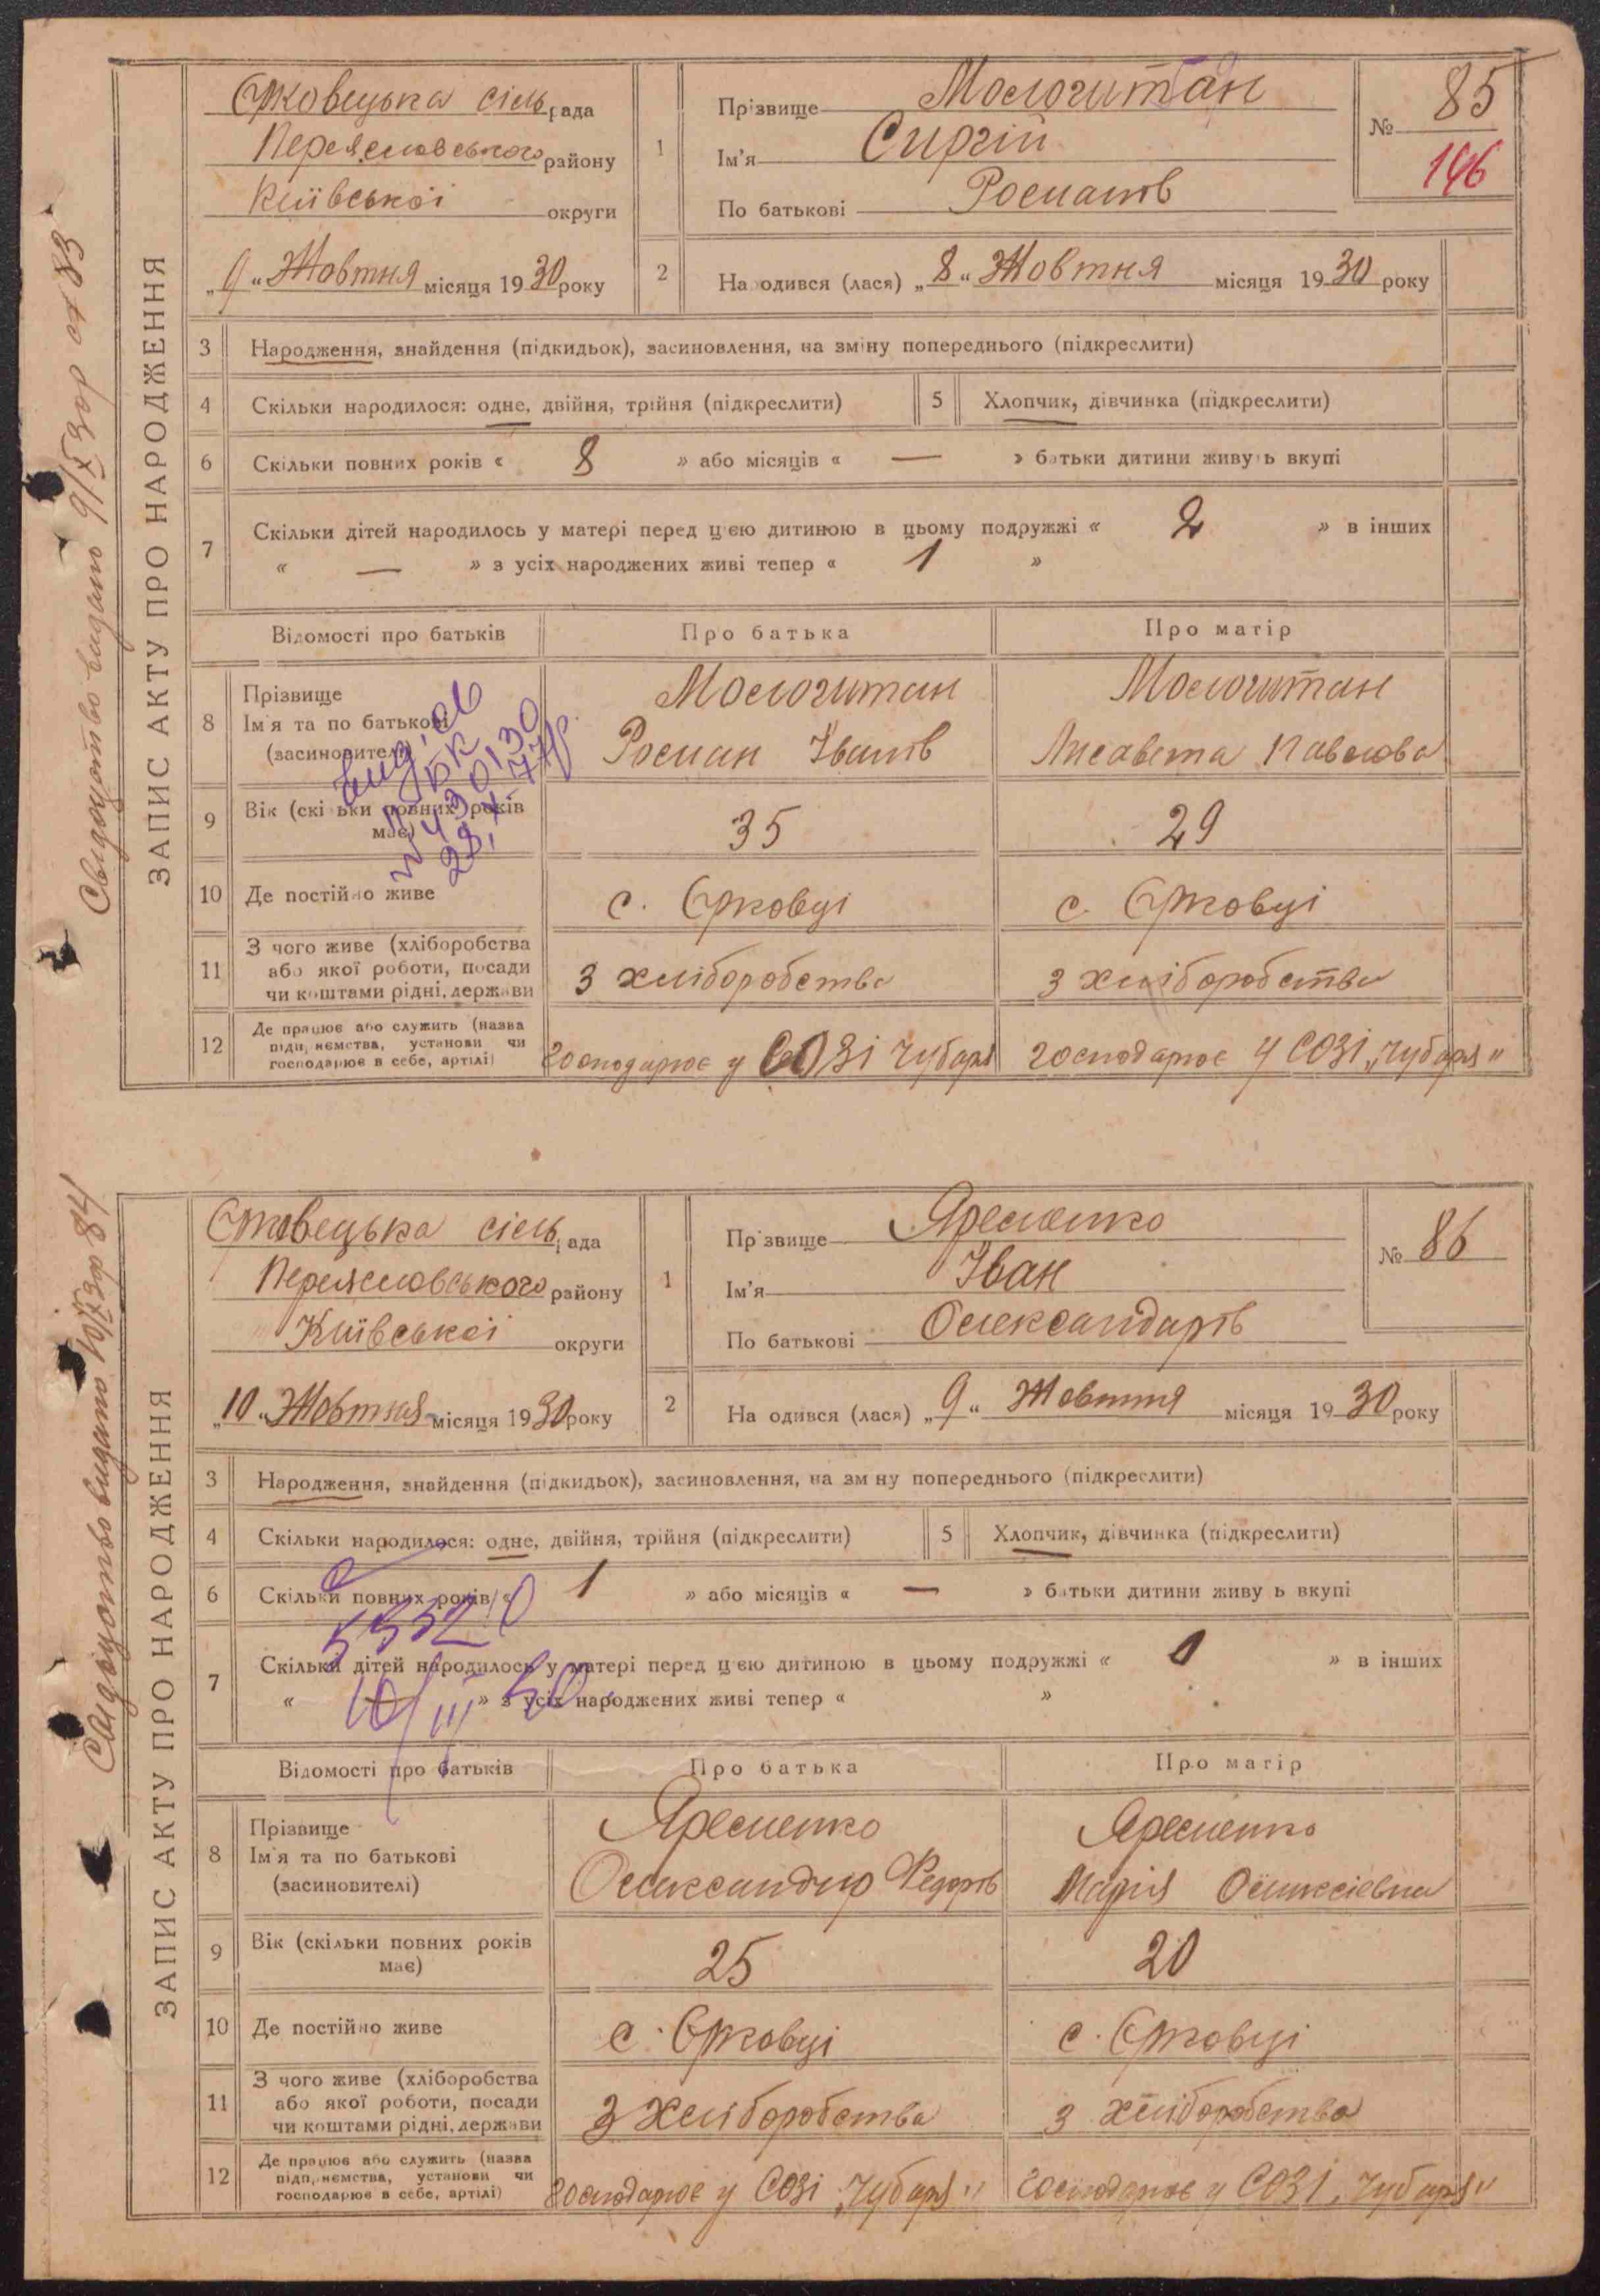 ЗАПИС АКТУ ПРО НАРОДЖЕННЯ
Свидоцтво видано 9/X 30р
Єрковецька сільрада
Переяславського району
Київської округи
„9“ Жовтня місяця 1930 року
1
Прізвище Молочитан
Ім'я Сиргій
По батькові Романів
№ 85
146
2
Народився (лася) „8“ Жовтня місяця 1930 року
3 Народження, знайдення (підкидьок), засиновлення, на зміну попереднього (підкреслити)
4 Скільки народилося: одне, двійня, трійня (підкреслити) 5 Хлопчик, дівчинка (підкреслити)
6 Скільки повних років « 8 » або місяців « — » батьки дитини живуть вкупі
7 Скільки дітей народилось у матері перед цією дитиною в цьому подружжі « 2 » в інших
« — » з усіх народжених живі тепер « 1 »
Відомості про батьків Про батька Про матір
8 Прізвище
Ім'я та по батькові
(засиновителі)
Молочитан
Роман Іванів
Молочитан
Лисавета Павлова
9 Вік (скільки повних років має) 35 29
10 Де постійно живе с. Єрковці с. Єрковці
11 З чого живе (хліборобства
або якої роботи, посади
чи коштами рідні, держави
З хліборобства з хліборобства
12 Де працює або служить (назва
підприємства, установи чи
господарює в себе, артілі)
господарює у СОЗі Чубаря господарює у СОЗі „Чубаря“
ЗАПИС АКТУ ПРО НАРОДЖЕННЯ
Свидоцтво видано 10/X 30р 84
Єрковецька сільрада
Переяславського району
Київської округи
„10“ Жовтня місяця 1930 року
1
Прізвище Яременко
Ім'я Іван
По батькові Олександрів
№ 86
2
Народився (лася) „9“ Жовтня місяця 1930 року
3 Народження, знайдення (підкидьок), засиновлення, на зміну попереднього (підкреслити)
4 Скільки народилося: одне, двійня, трійня (підкреслити) 5 Хлопчик, дівчинка (підкреслити)
6 Скільки повних років « 1 » або місяців « — » батьки дитини живуть вкупі
7 Скільки дітей народилось у матері перед цією дитиною в цьому подружжі « 0 » в інших
« » з усіх народжених живі тепер « »
Відомості про батьків Про батька Про матір
8 Прізвище
Ім'я та по батькові
(засиновителі)
Яременко
Олександир Федорів
Яременко
Марія Олексієвна
9 Вік (скільки повних років має) 25 20
10 Де постійно живе с. Єрковці с. Єрковці
11 З чого живе (хліборобства
або якої роботи, посади
чи коштами рідні, держави
З хліборобства з хліборобства
12 Де працює або служить (назва
підприємства, установи чи
господарює в себе, артілі)
господарює у СОЗі „Чубаря“ господарює у СОЗі „Чубаря“